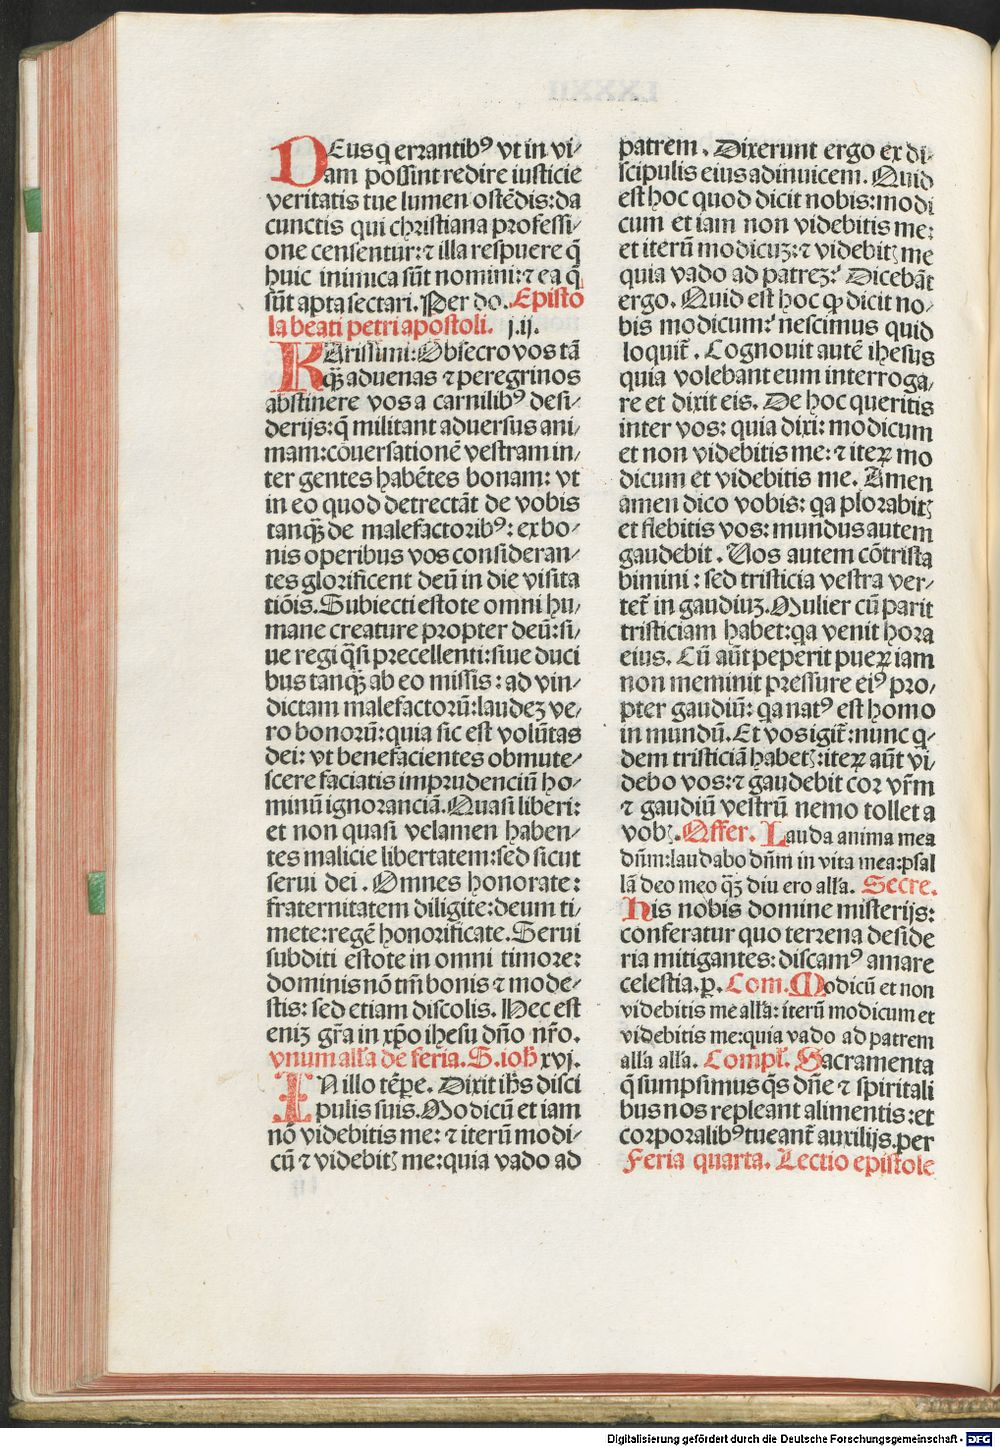 DEus q̄ errantibꝰ vt in vi⸗
am possint redire iusticie
veritatis tue lumen ostēdis: da
cunctis qui christiana professi⸗
one censentur: ⁊ illa respuere q̄
huic inimica sūt nomini: ⁊ ea q̄
sūt apta sectari. Per do. Episto
la beati petri apostoli. j. ij.
KArissimi: Obsecro vos tā
qꝫ̄ aduenas ⁊ peregrinos
abstinere vos a carnilibꝰ desi⸗
derijs: q̄ militant aduersus ani⸗
mam: cōuersationē vestram in⸗
ter gentes habētes bonam: vt
in eo quod detrectāt de vobis
tanqꝫ̄ de malefactoribꝰ: ex bo⸗
nis operibus vos consideran⸗
tes glorificent deū in die visita
tiōis. Subiecti estote omni hu⸗
mane creature propter deū: si⸗
ue regi q̄si precellenti: siue duci
bus tanqꝫ̄ ab eo missis: ad vin⸗
dictam malefactorū: laudeꝫ ve⸗
ro bonorū: quia sic est volūtas
dei: vt benefacientes obmute⸗
scere faciatis imprudenciū ho⸗
minū ignoranciā. Quasi liberi:
et non quasi velamen haben⸗
tes malicie libertatem: sed sicut
serui dei. Omnes honorate:
fraternitatem diligite: deum ti⸗
mete: regē honorificate. Serui
subditi estote in omni timore:
dominis nō tm̄ bonis ⁊ mode⸗
stis: sed etiam discolis. Hec est
enīꝫ gr̄a in xp̄o ihesu dn̄o nr̄o.
vnum all'a de feria. S. ioh̄ xvj.
IN illo tēpe. Dixit ih̄s disci
pulis suis. Modicū et iam
nō videbitis me: ⁊ iterū modi⸗
cū ⁊ videbitꝭ me: quia vado ad
patrem. Dixerunt ergo ex di⸗
scipulis eius adinuicem. Quid
est hoc quod dicit nobis: modi
cum et iam non videbitis me:
et iterū modicuꝫ: ⁊ videbitꝭ me
quia vado ad patreꝫ? Dicebāt
ergo. Quid est hoc ꝙ dicit no⸗
bis modicum? nescimus quid
loquit̄. Cognouit autē ihesus
quia volebant eum interroga⸗
re et dixit eis. De hoc queritis
inter vos: quia dixi: modicum
et non videbitis me: ⁊ iteꝝ mo
dicum et videbitis me. Amen
amen dico vobis: qa plorabitꝭ
et flebitis vos: mundus autem
gaudebit. Vos autem cōtrista
bimini: sed tristicia vestra ver⸗
tet̄ in gaudiuꝫ. Mulier cū parit
tristiciam habet: qa venit hora
eius. Cū aūt peperit pueꝝ iam
non meminit pressure eiꝰ pro⸗
pter gaudiū: qa natꝰ est homo
in mundū. Et vos igit̄: nunc q⸗
dem tristiciā habetꝭ: iteꝝ aūt vi⸗
debo vos: ⁊ gaudebit cor vr̄m
⁊ gaudiū vestrū nemo tollet a
vobꝭ. Offer. Lauda anima mea
dn̄m: laudabo dn̄m in vita mea: psal
lā deo meo qꝫ̄ diu ero all'a. Secre.
His nobis domine misterijs:
conferatur quo terrena deside
ria mitigantes: discamꝰ amare
celestia. p. Com. Modicū et non
videbitis me all'a: iterū modicum et
videbitis me: quia vado ad patrem
all'a all'a. Compl'. Sacramenta
q̄ sumpsimus q̄s dn̄e ⁊ spiritali
bus nos repleant alimentis: et
corporalibꝰ tueant̄ auxilijs. per
Feria quarta. Lectio epistole
Digitalisierung gefördert durch die Deutsche Forschungsgemeinschaft - DFG